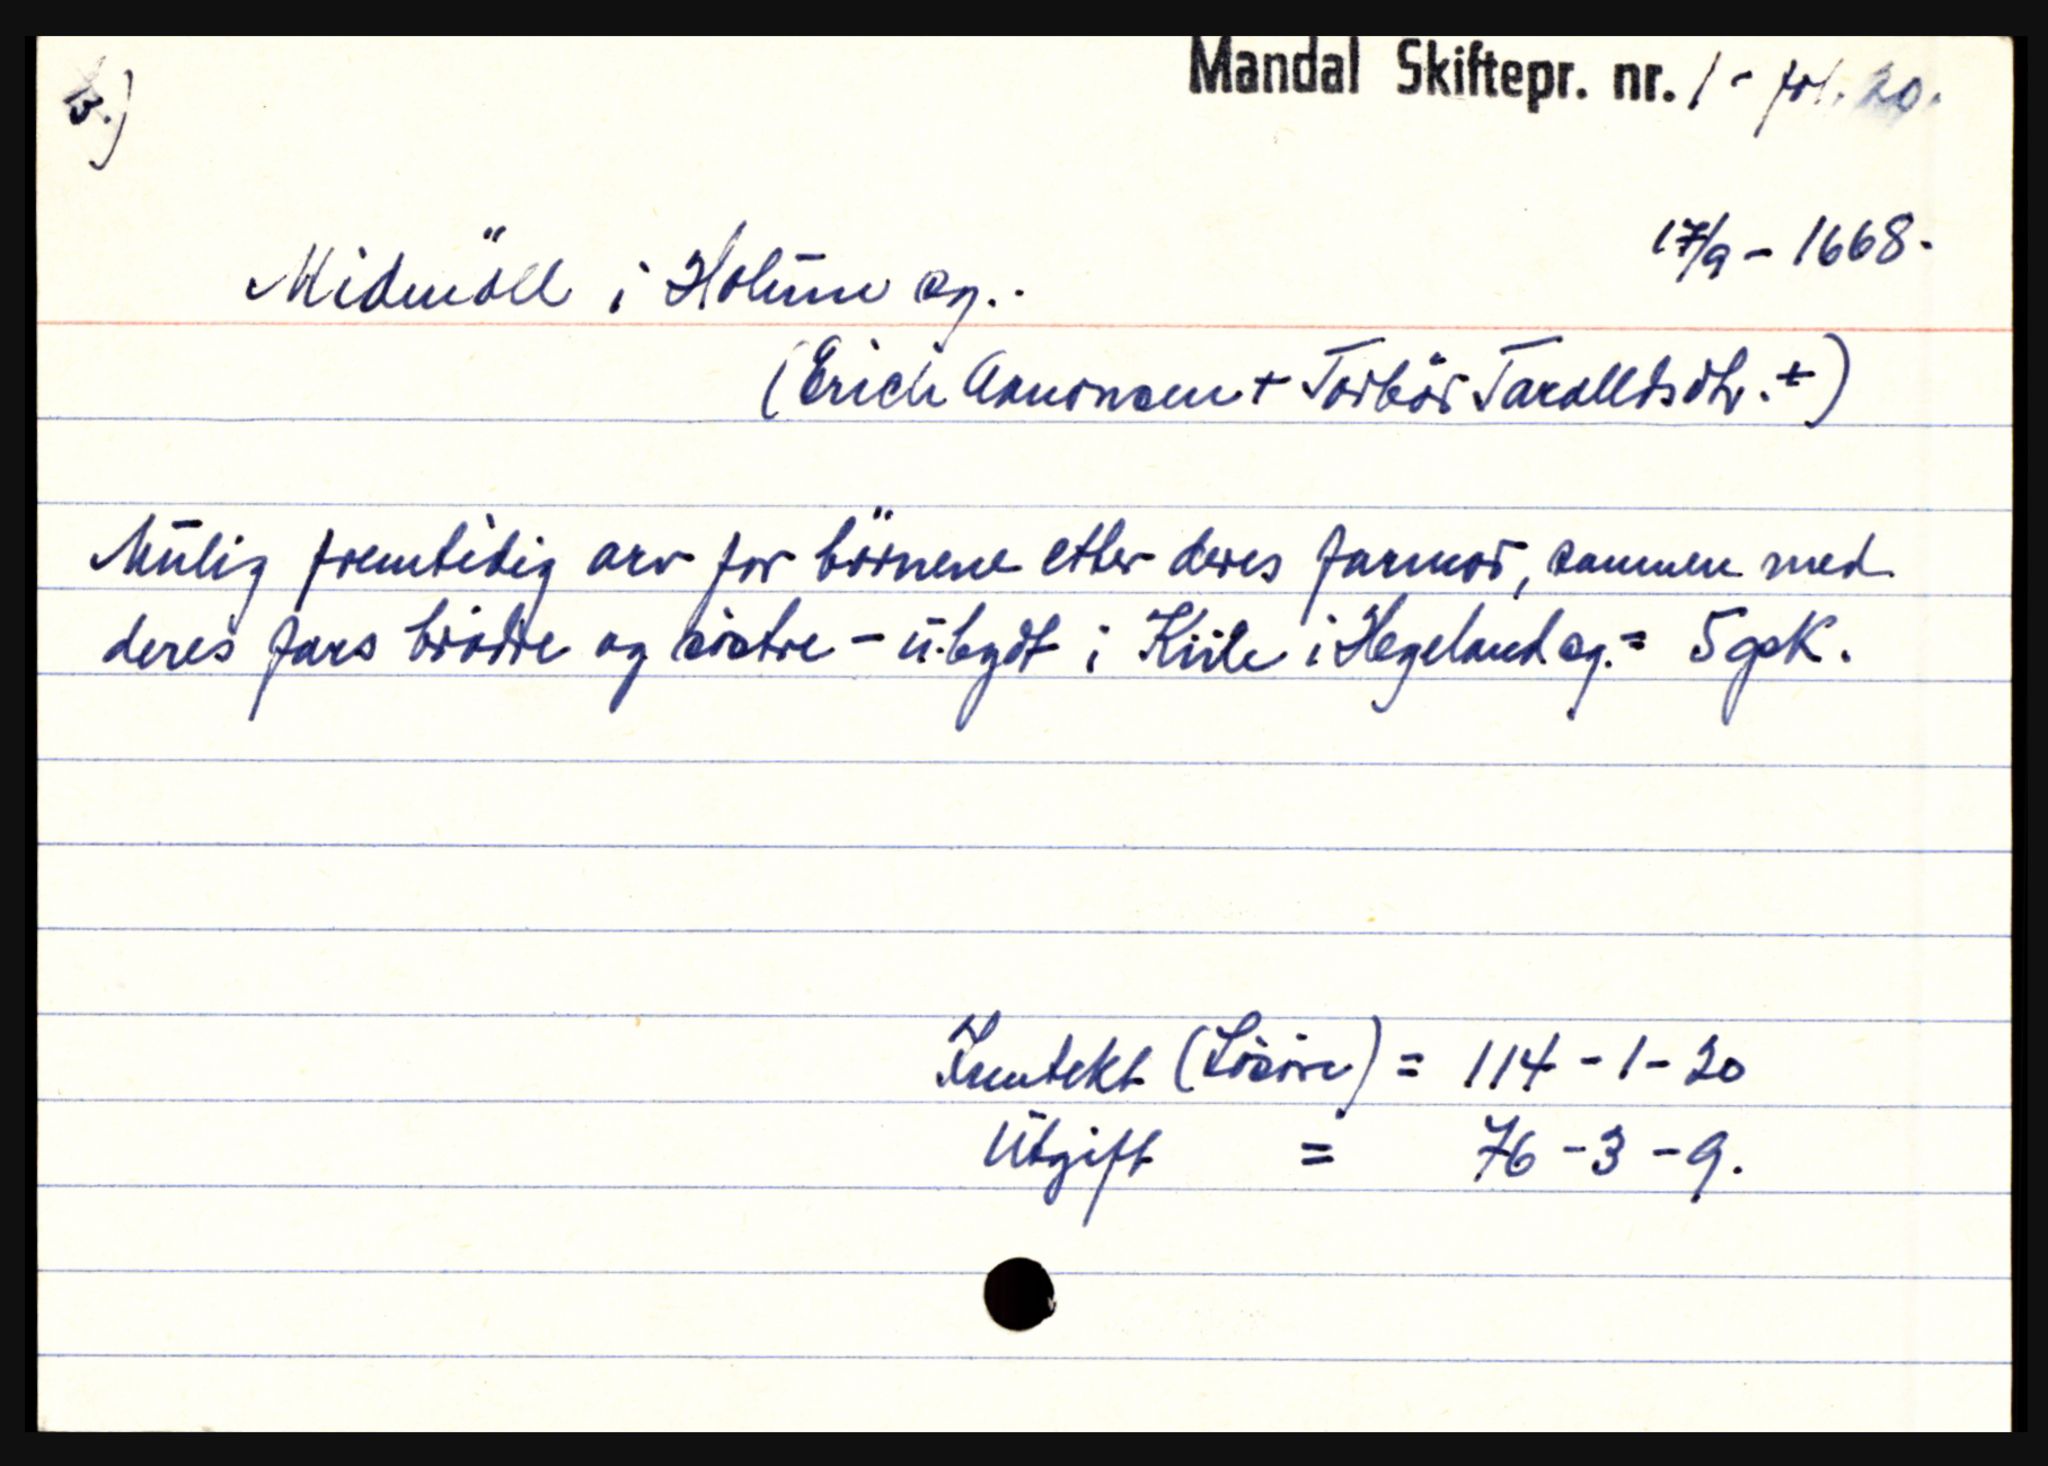 3.)
Mandal Skiftepr. nr. 1 - fol. 20.
17/9 - 1668.
Midmöll i Holūm sg..
(Erich Aanonsen + Torbör Taralldsdtr. +)
Mūlig fremtidig arv for börnene etter deres farmor, sammen med
deres fars brödre og söstre - ū.bygdt i Kiile i Hegeland sg. = 5 gsk.
Inntekt (Lösöre) = 114 - 1 - 20
Ūtgift = 76 - 3 - 9.